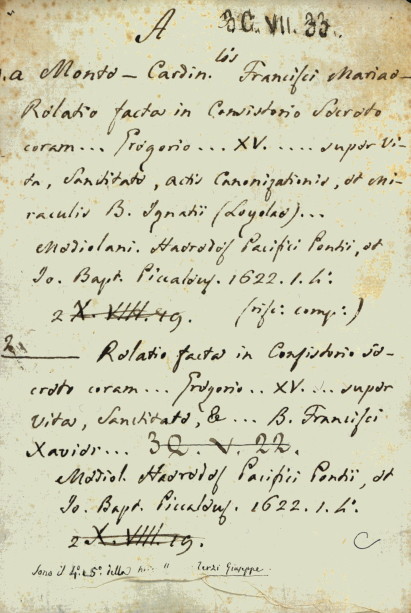 A 3C. VII. 33.
.a Monte - Cardin.lis Francisci Mariae -
Relatio facta in Consistorio Secreto
coram... Gregorio... XV..... super Vi-
ta, Sanctitate, actis Canonizationis, et Mi-
raculis B. Ignatii (Loyolae)...
Mediolani. Haeredes Pacifici Pontii, et
Io. Bapt. Piccaleus. 1622. 1. 4.
2 X. VIII. 19. (risc: comp:)
2. Relatio facta in Consistorio Se-
creto coram... Gregorio.. XV... super
Vita, Sanctitate, &... B. Francisci
Xaverii... 3C. V. 22.
Mediol. Haeredes Pacifici Pontii, et
Io. Bapt. Piccaleus. 1622. 1. 4.
2 X. VIII. 19.
Sono il 4° e 5° della " Terzi Giuseppe.